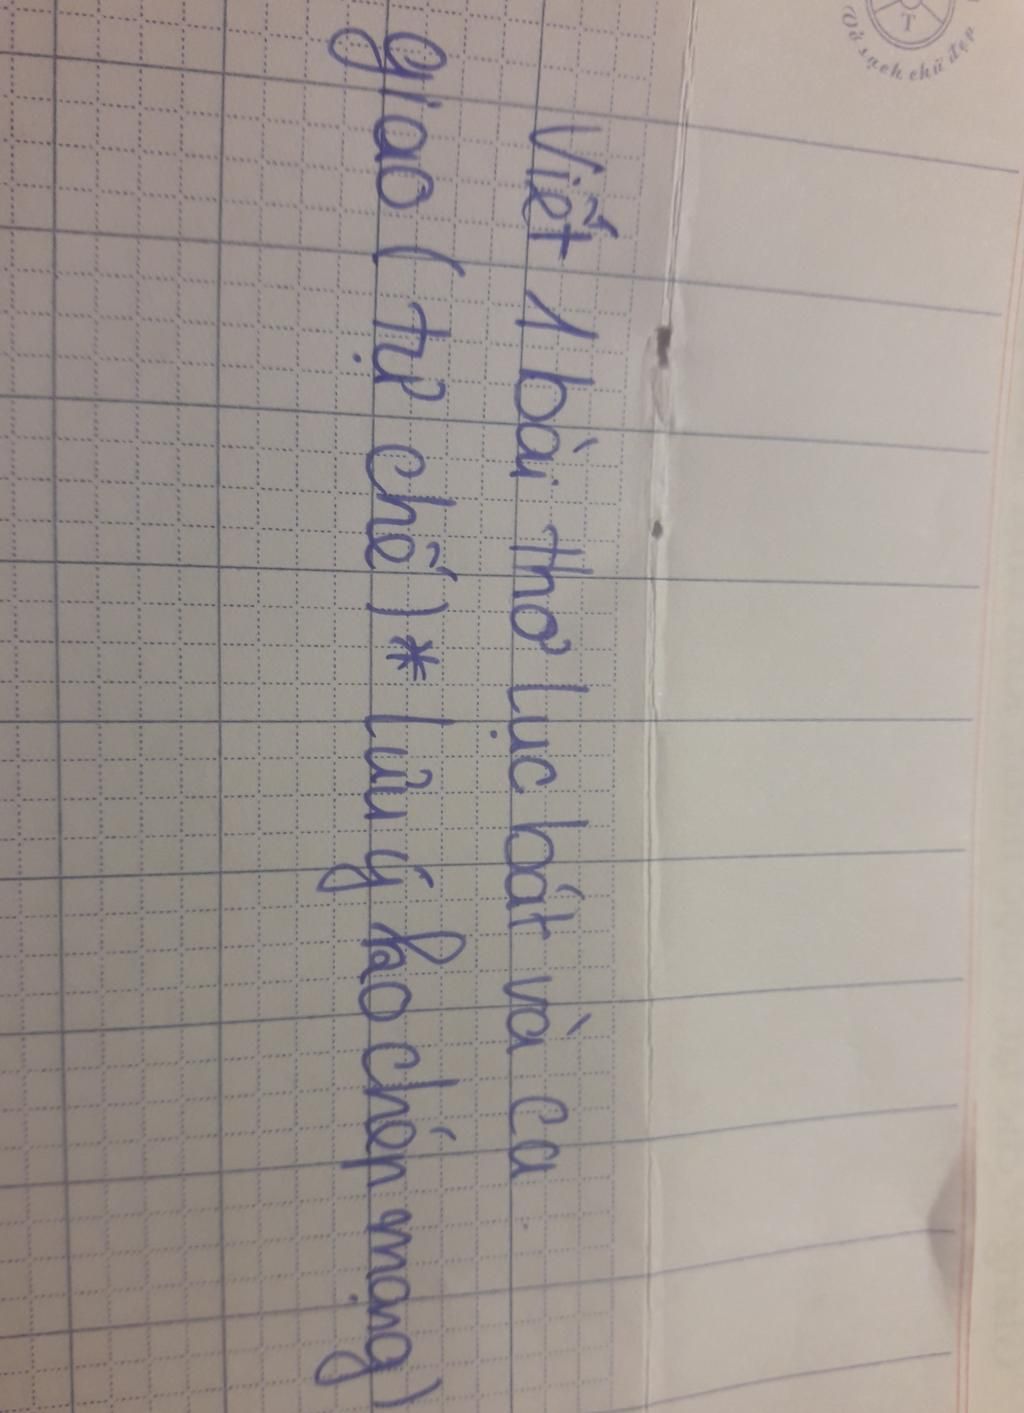 Vở sạch chữ đẹp
Viết 1 bài thơ lục bát và ca
giao (tự chế) * lưu ý ko chép mạng)